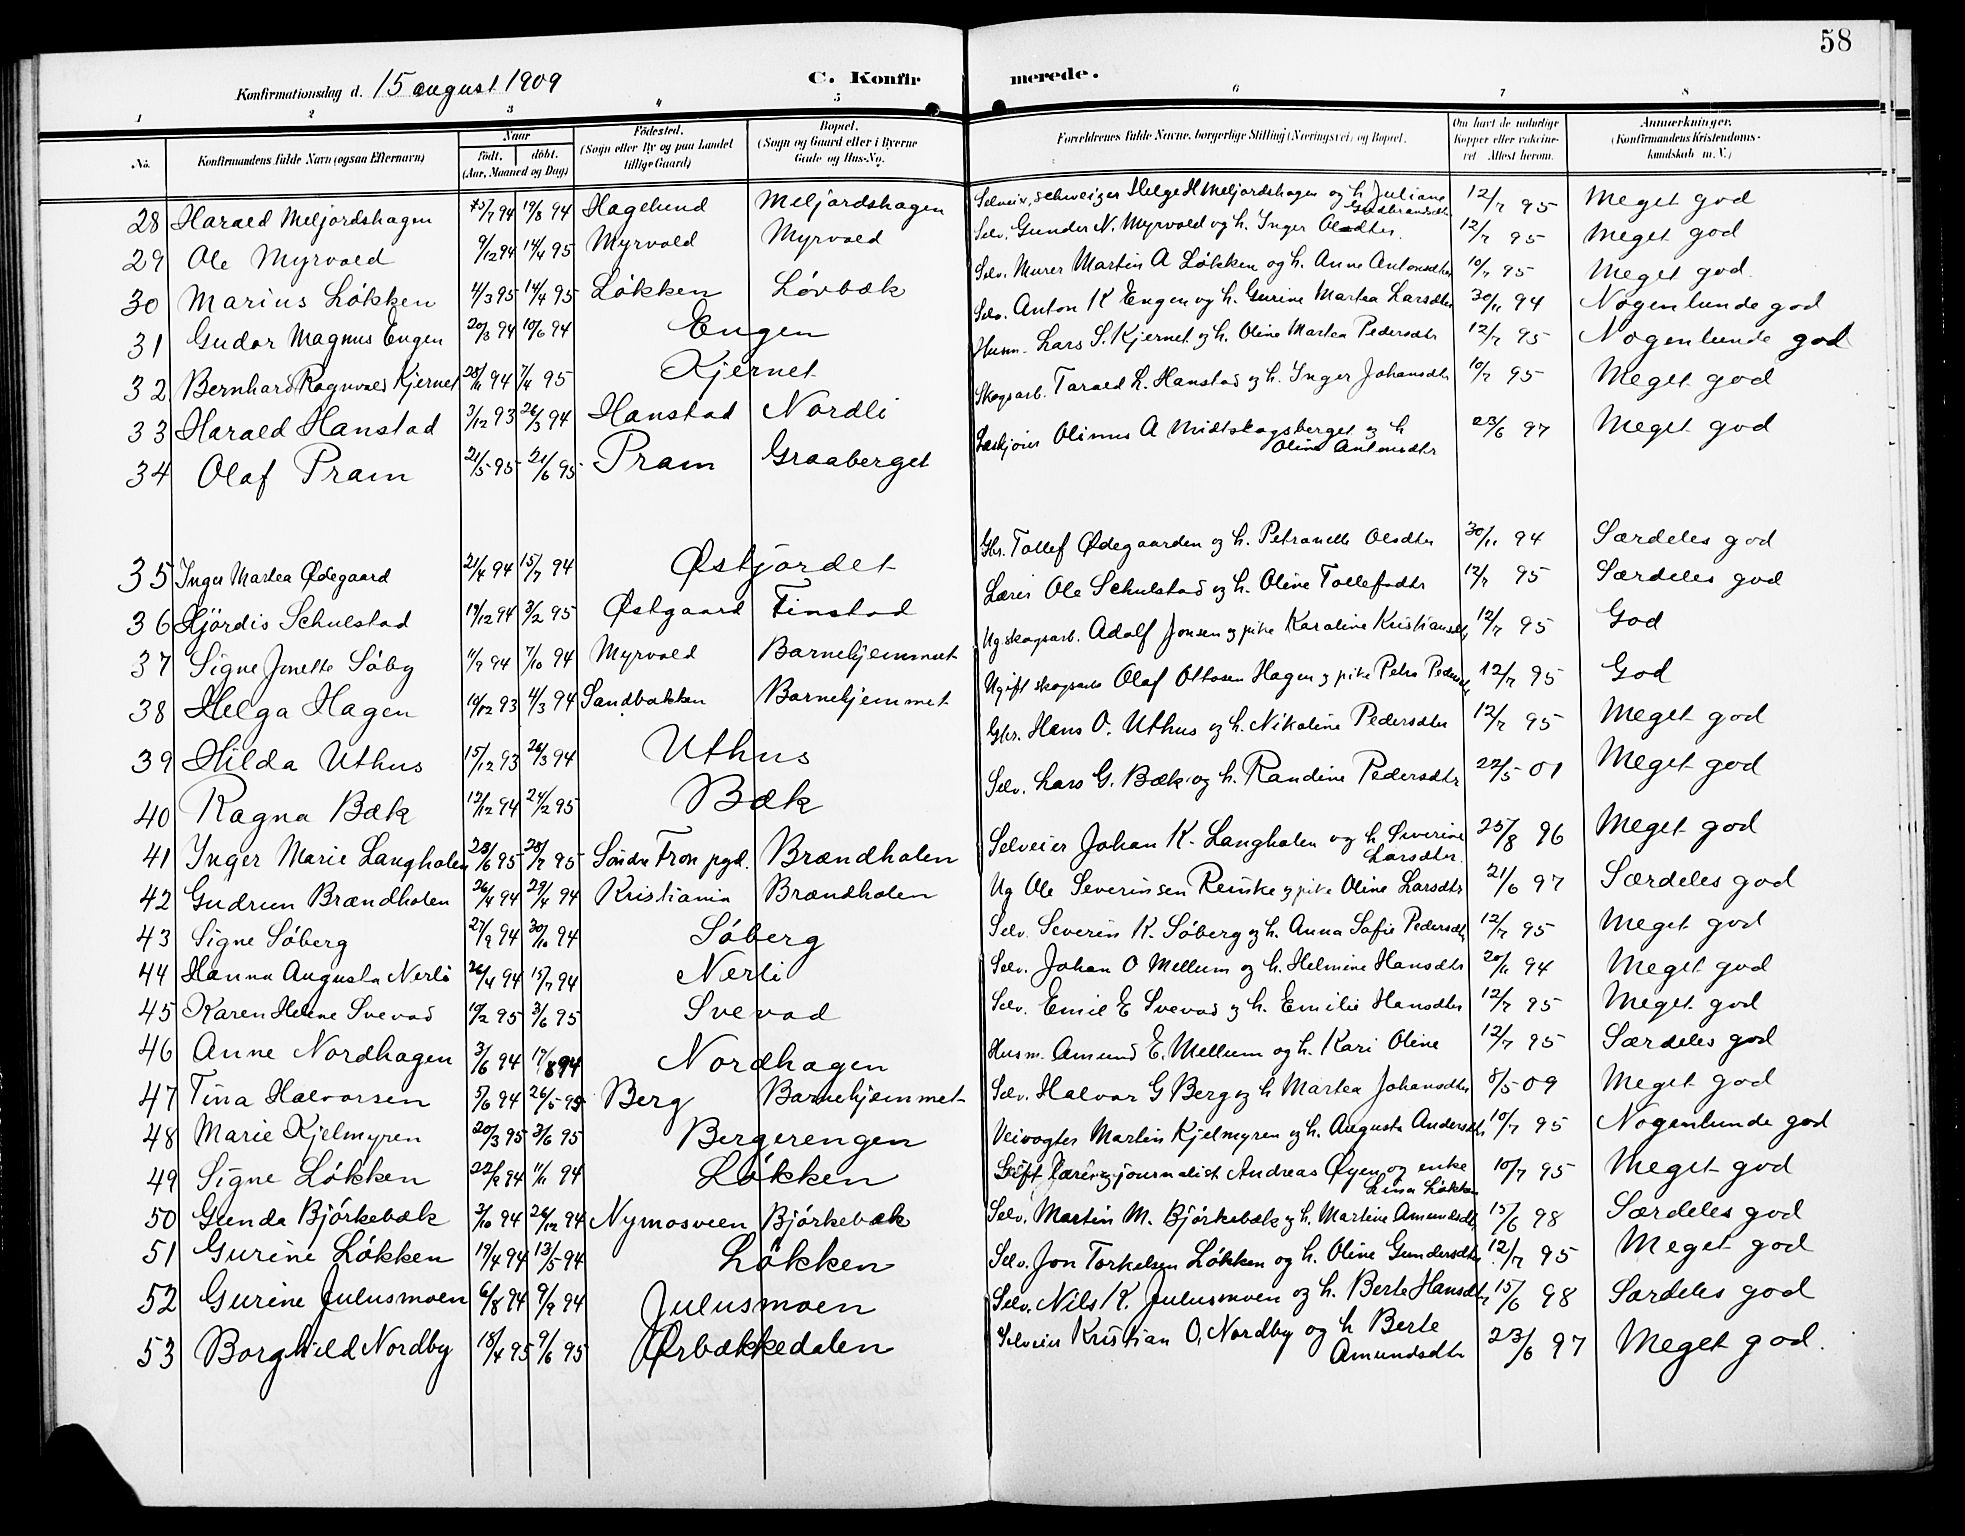 58
Konfirmationsdag d. 15 august 1909
C. Konfirmerede.
1 2 3 4 5 6 7 8
No. Konfirmandens fulde Navn (ogsaa Efternavn) Naar født. døbt. (Aar, Maaned og Dag) Fødested. (Sogn eller By og paa Landet tillige Gaard) Bopæl. (Sogn og Gaard eller i Byerne Gade og Hus-No. Forældrenes fulde Navne, borgerlige Stilling (Næringsvei) og Bopæl. Om havt de naturlige Kopper eller vakcineret Attest herom. Anmærkninger. (Konfirmandens Kristendomskundskab m. V.)
28 Harald Meljordshagen /7 94 19/8 94 Hagelund Meljordshagen Selveier, schweizer Helge H Meljordshagen og h. Juliane Gudbrandsdtr 12/7 95 Meget god
29 Ole Myrvold 9/12 94 14/4 95 Myrvold Myrvold Selv. Gunder N. Myrvold og h. Inger Olsdtr. 12/7 95 Meget god
30 Marius Løkken 4/3 95 14/4 95 Løkken Løvbæk Selv. Murer Martin A Løkken og h. Anne Antonsdtr 10/7 95 Meget god.
31 Gudor Magnus Engen 20/3 94 10/6 94 Engen Selv. Anton K Engen og h. Gurine Martea Larsdtr 30/11 94 Nogenlunde god
32 Bernhard Ragnvald Kjernet 28/11 94 7/4 95 Kjernet Husm. Lars S. Kjernet og h. Oline Martea Pedersdtr 12/7 95 Nogenlunde god
33 Harald Hanstad 3/12 93 26/3 94 Hanstad Nordli Skogsarb. Tarald L. Hanstad og h. Inger Johansdtr 10/7 95 Meget god
34 Olaf Pram 21/5 95 21/6 95 Pram Graaberget Olinus A Midtskogsberget og h Oline Antonsdtr 23/6 97 Meget god
35 Inger Martea Ødegaard 21/4 94 15/7 94 Østjordet Gbr. Tollef Ødegaarden og h. Petranelle Olsdtr 30/11 94 Særdeles god
36 Hjördis Schulstad 19/12 94 3/2 95 Østgaard Finstad Lærer Ole Schulstad og h. Oline Tollefsdtr 12/7 95 Særdeles god
37 Signe Jonette Søby 11/9 94 7/10 94 Myrvold Barnehjemmet Ug skogsarb. Adolf Jonsen og pike Karoline Kristiansdtr 12/7 95 God
38 Helga Hagen 14/12 93 4/3 94 Sandbakken Barnehjemmet Ugift skogsarb Olaf Ottosen Hagen og pike Petra Pedersdtr 12/7 95 God
39 Hilda Uthus 15/12 93 26/3 94 Uthus Gbr. Hans O. Uthus og h. Nikoline Pedersdtr 12/7 95 Meget god
40 Ragna Bæk 12/12 94 24/2 95 Bæk Selv. Lars G. Bæk og h. Randine Pedersdtr 22/5 01 Meget god
41 Inger Marie Langholen 23/6 95 28/7 95 Søndre Fron pgd. Brændholen Selveier Johan K. Langholen og h. Severine Larsdtr. 25/8 96 Meget god
42 Gudrun Brændholen 26/4 94 29/4 94 Kristiania Brændholen Ug Ole Severinsen Reinske og pike Oline Larsdtr 21/6 97 Særdeles god
43 Signe Søberg 27/9 94 30/10 94 Søberg Selv. Severin K. Søberg og h. Anna Sofie Pedersdtr 12/7 95 Meget god
44 Hanna Augusta Nerli 26/4 94 15/7 94 Nerli Selv. Johan O Mellum og h. Helmine Hansdtr 20/11 94 Meget god
45 Karen Helene Svevad 19/2 95 3/6 95 Svevad Selv. Emil E Svevad og h. Emilie Hansdtr 12/7 95 Meget god
46 Anne Nordhagen 3/6 94 17/8 94 Nordhagen Husm. Amund E. Mellum og h. Kari Oline 12/7 95 Særdeles god
47 Tina Halvorsen 5/6 94 26/5 95 Berg Barnehjemmet Selv. Halvor G Berg og h Martea Johansdtr 8/5 09 Meget god
48 Marie Kjelmyren 20/3 95 3/6 95 Bergerengen Veivogter Martin Kjelmyren og h. Augusta Andersdtr 10/7 95 Nogenlunde god
49 Signe Løkken 22/9 94 11/11 94 Løkken Gift lærer og journalist Andreas Øyen og enke Lina Løkken 10/7 95 Meget god
50 Gunda Bjørkebæk 3/10 94 26/12 94 Nymosveen Bjørkebæk Selv. Martin M. Bjørkebæk og h. Martine Amundsdtr 15/6 98 Særdeles god
51 Gurine Løkken 19/4 94 13/5 94 Løkken Selv. Jon Torkelsen Løkken og h. Oline Gundersdtr 12/7 95 Meget god
52 Gurine Julusmoen 6/8 94 9/9 94 Julusmoen Selv. Nils K. Julusmoen og h. Berte Hansdtr 15/6 98 Særdeles god
53 Borghild Nordby 18/4 95 9/6 95 Ørbækkedalen Selveier Kristian O. Nordby og h Berte Amundsdtr 23/6 97 Meget god.